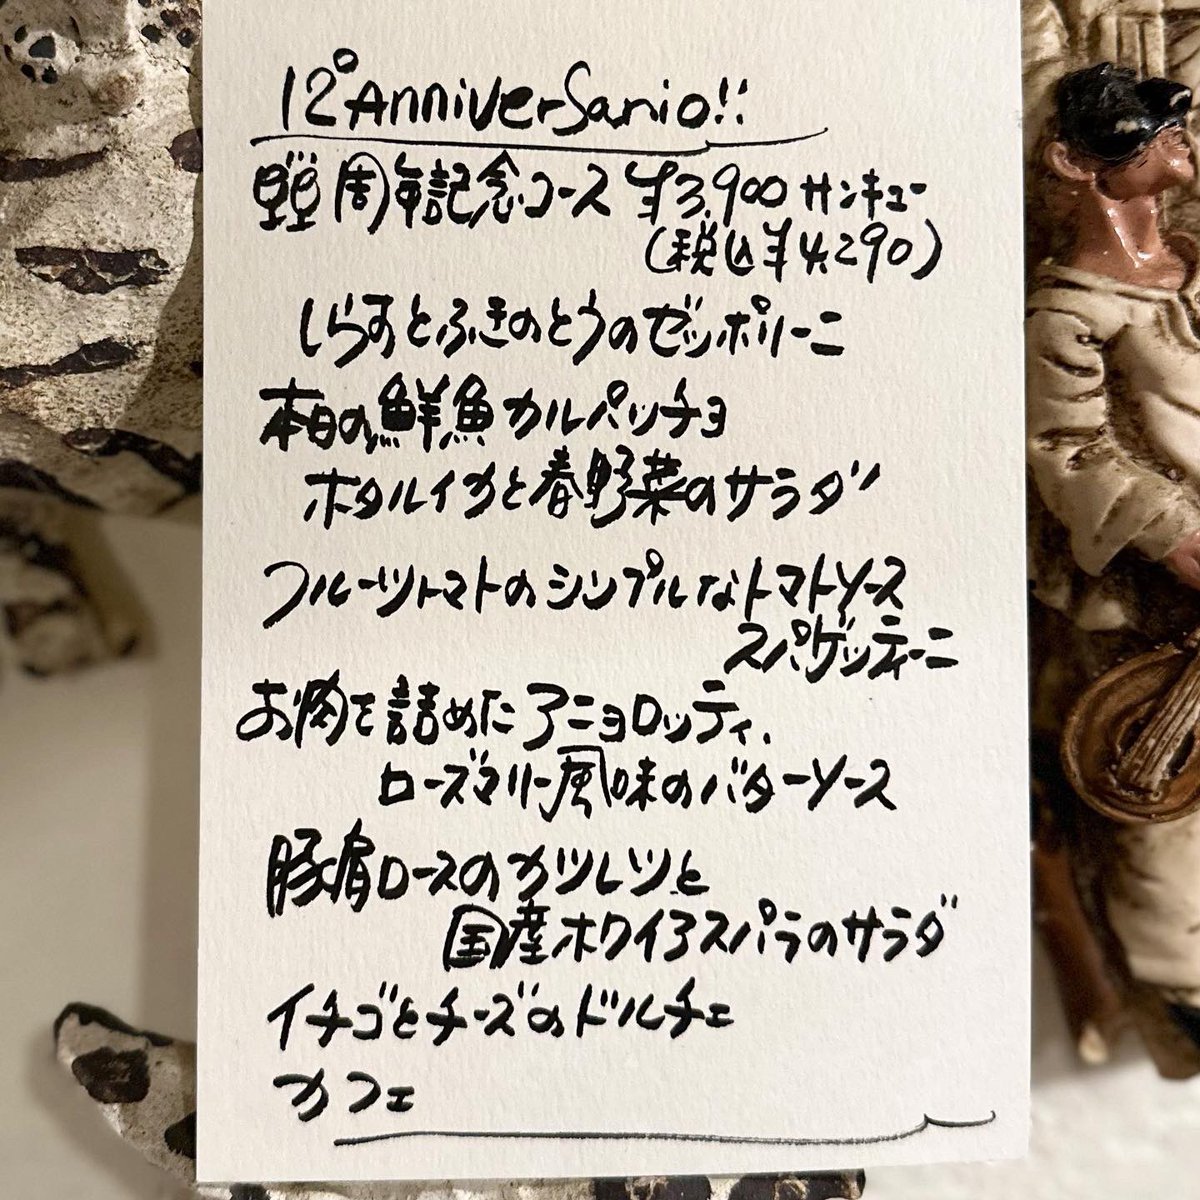 12° AnniverSario!!
周年記念コース ¥3,900 サンキュー
(税込¥4,290)
しらすとふきのとうのゼッポリーニ
本日の鮮魚カルパッチョ
ホタルイカと春野菜のサラダ
フルーツトマトのシンプルなトマトソース
スパゲッティーニ
お肉を詰めたアニョロッティ、
ローズマリー風味のバターソース
豚肩ロースのカツレツと
国産ホワイトアスパラのサラダ
イチゴとチーズのドルチェ
カフェ